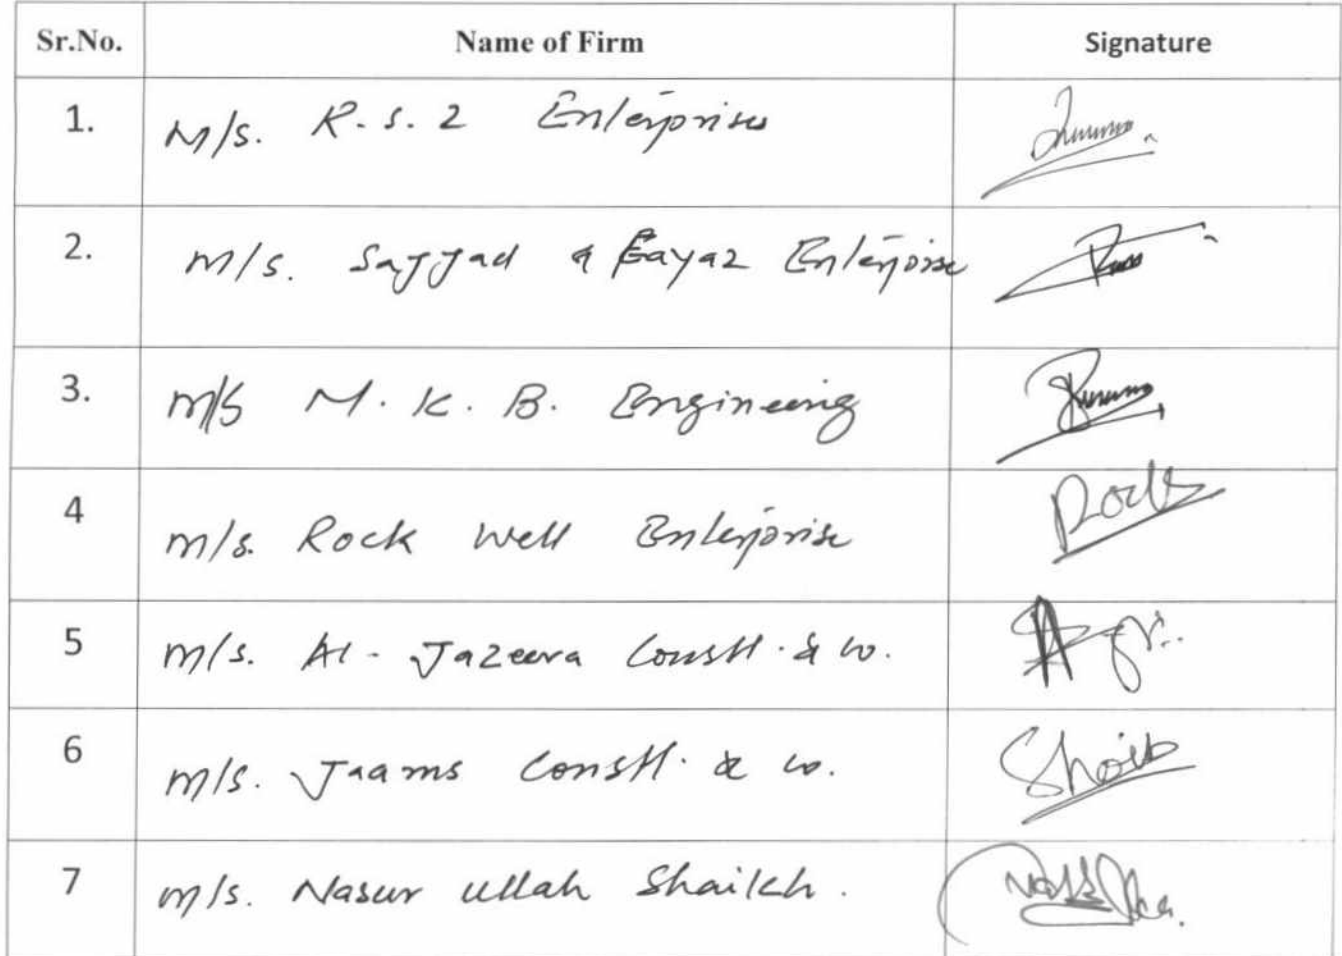 Sr.No. Name of Firm Signature
1. M/s. R.S.Z Enterprises
2. M/s. Sajjad & Fayaz Enterprise
3. M/S M.K.B. Engineering
4 M/s. Rock Well Enterprise Rock
5 M/s. Al-Jazeera Constt. & Co.
6 M/s. Jaams Constt. & Co. Shoib
7 M/s. Nasur ullah Shaikh.